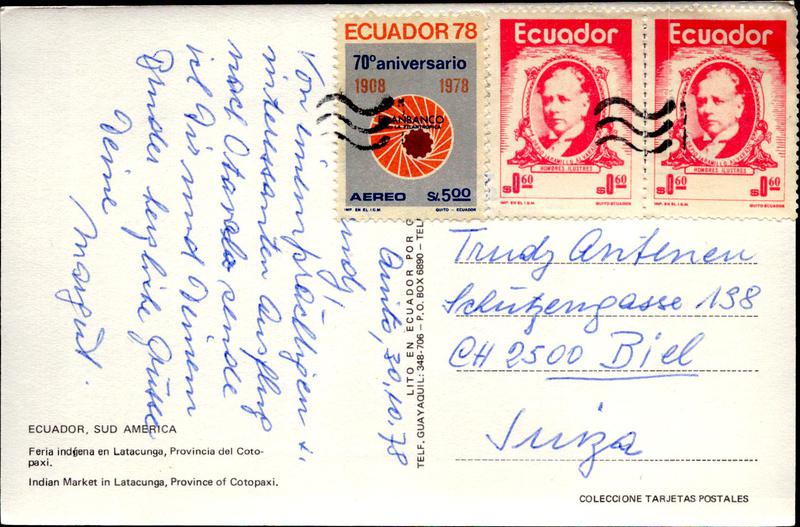 ECUADOR 78
70º aniversario
1908 1978
FILANBANCO
LA FILANTROPICA
AEREO S/. 5.00
IMP. EN EL I.G.M. QUITO - ECUADOR
Ecuador
HOMBRES ILUSTRES
S/ 0.60 S/ 0.60
IMP. EN EL I.G.M. QUITO-ECUADOR
Ecuador
HOMBRES ILUSTRES
S/ 0.60 S/ 0.60
IMP. EN EL I.G.M. QUITO-ECUADOR
Quito, 30.10.78
Von einem prächtigen u.
interessanten Ausflug
nach Otavalo, sende
ich Dir und Deinem
Bruder herzliche Grüsse
Deine
Margrit.
LITO EN ECUADOR POR
TELF. GUAYAQUIL: 348-706 - P.O. BOX 6890 - TEL
Trudy Antenen
Schützengasse 138
CH 2500 Biel
Suiza
ECUADOR, SUD AMERICA
Feria indígena en Latacunga, Provincia del Coto-
paxi.
Indian Market in Latacunga, Province of Cotopaxi.
COLECCIONE TARJETAS POSTALES